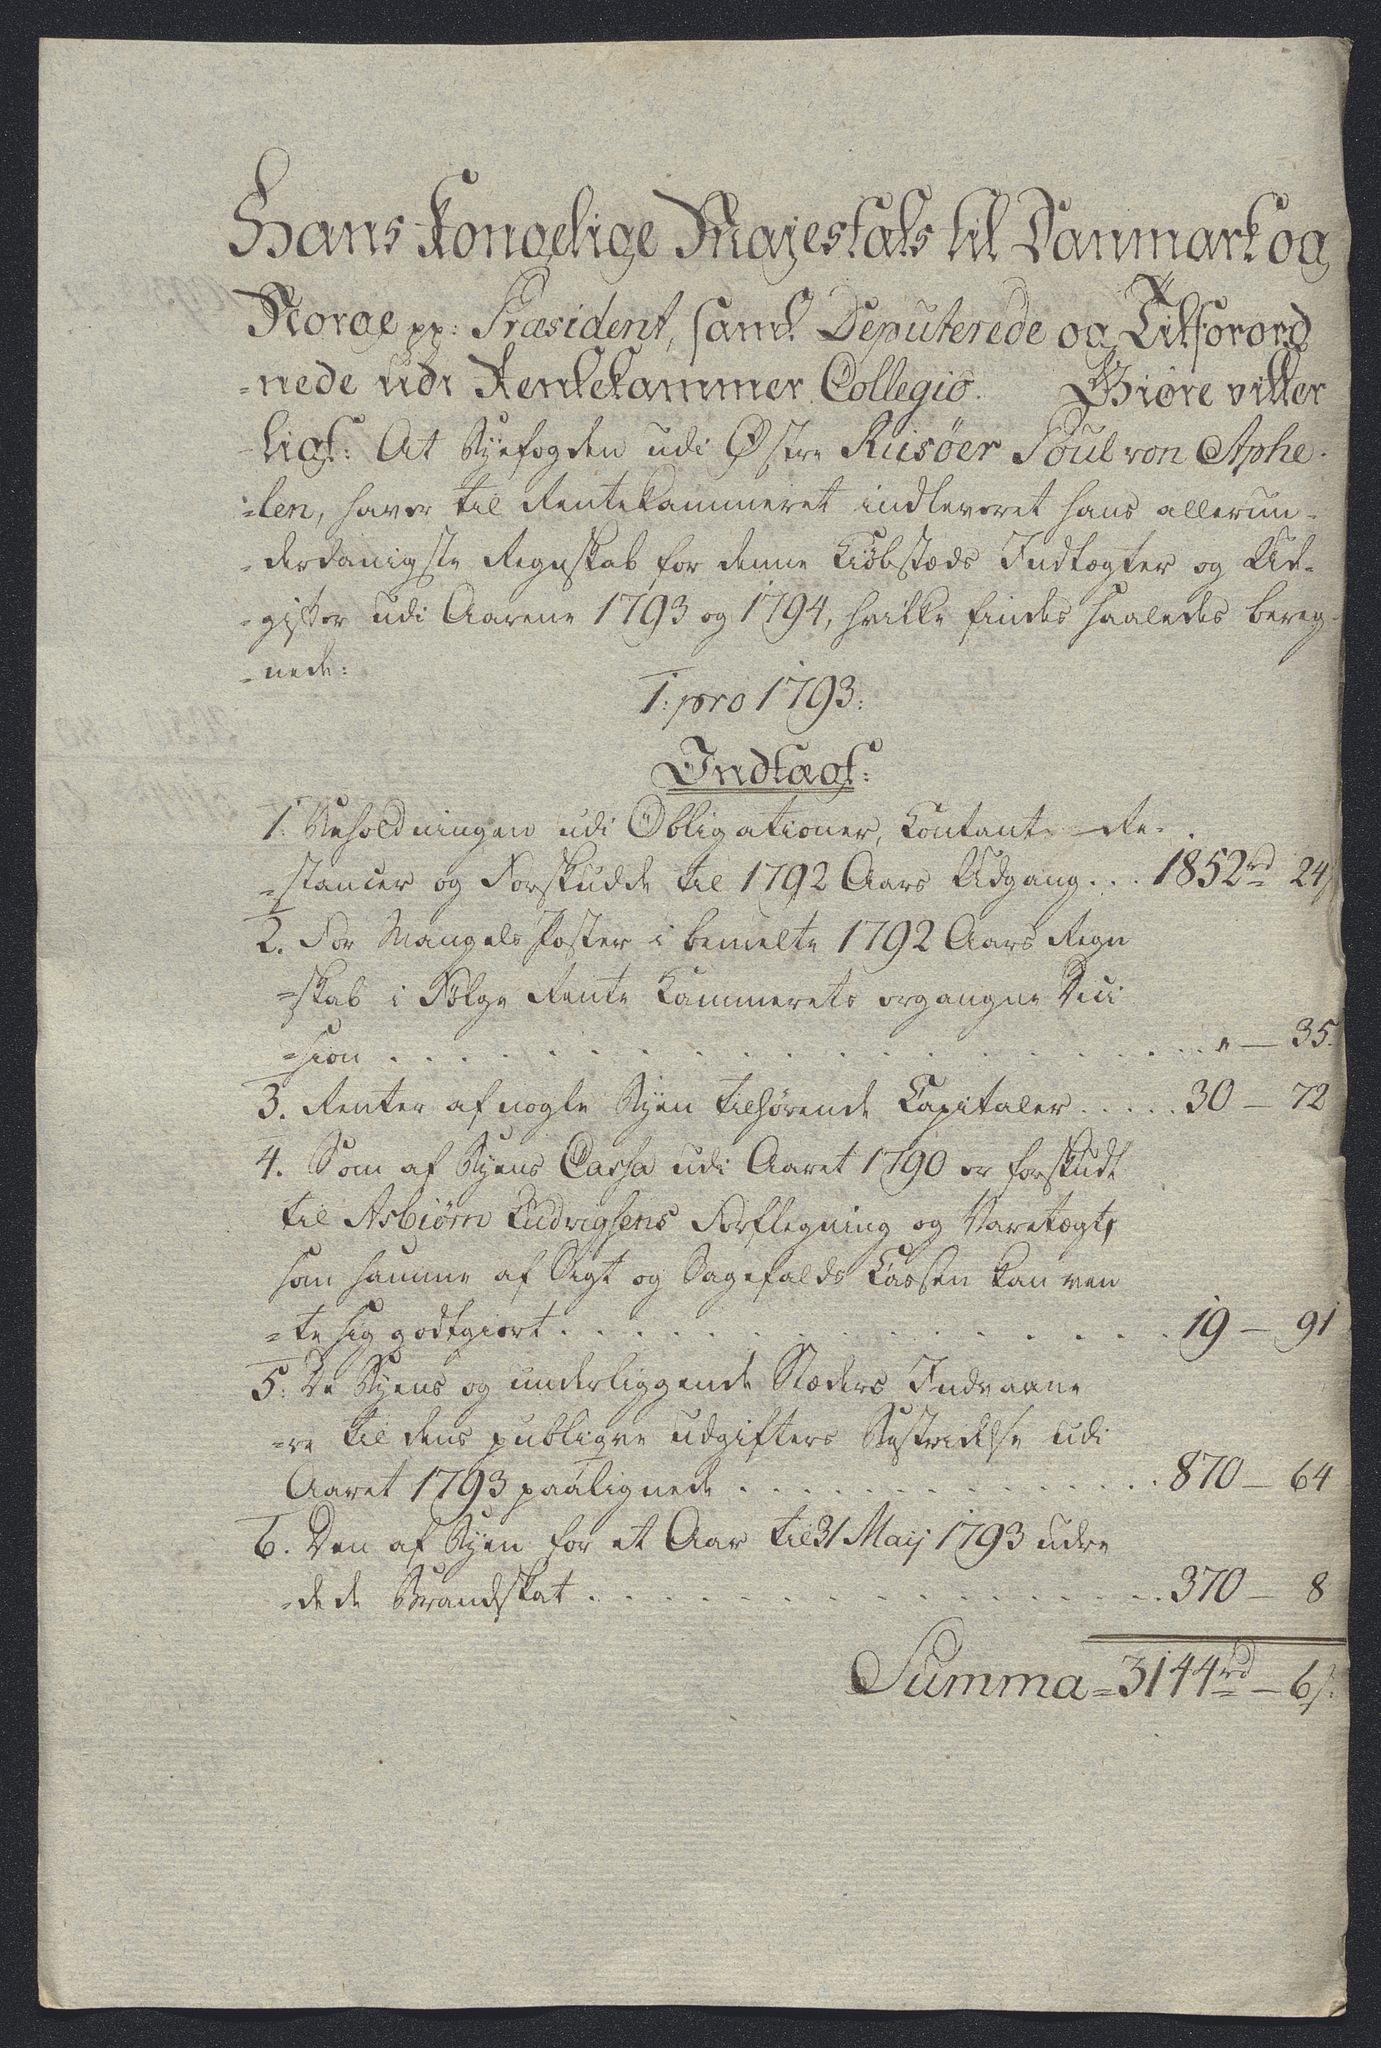 Hans Kongelige Majestæts til Danmark og
Norge pp: Præsident, samt Deputerede og Tilforord
-nede udi Rentekammer Collegio. Giøre vitter
-ligt: At Byefogden udi Østre Riisøer Poul von Aphe-
-len, haver til Rentekammeret indleveret hans allerun-
-derdanigste Regnskab for denne Kiøbstæds Indtægter og Ud-
-gifter udi Aarene 1793 og 1794, hvilke findes saaledes bereg-
-nede:
1: pro 1793:
Indtægt:
1. Beholdningen udi Obligationer, Contante Re-
-stancer og Forskudde til 1792 Aars Udgang... 1852rd 24ß
2. For Mangels Poster i bemelte 1792 Aars Regn
-skab i Følge Rente Kammerets ergangne Deci
-sion . . . . . . . . . . . . . . . " — 35.
3. Renter af nogle Byen tilhørende Capitaler . . . . . 30 — 72
4. Som af Byens Cassa udi Aaret 1790 er forskudt
til Asbiørn Ludvigsens Forflegning og Varetægt,
som samme af Sigt og Sagefalds Cassen kan ven
-te sig godtgiort . . . . . . . . . . . . . . 19 — 91
5. De Byens og underliggende Stæders Indvaane
-re til dens publiqve Udgifters Bestridelse udi
Aaret 1793 paalignede . . . . . . . . . . . . 870 — 64
6. Den af Byen for et Aar til 31 Maij 1793 udre
-dede Brandskat . . . . . . . . . . . . . . 370 — 8
Summa = 3144rd — 6ß.